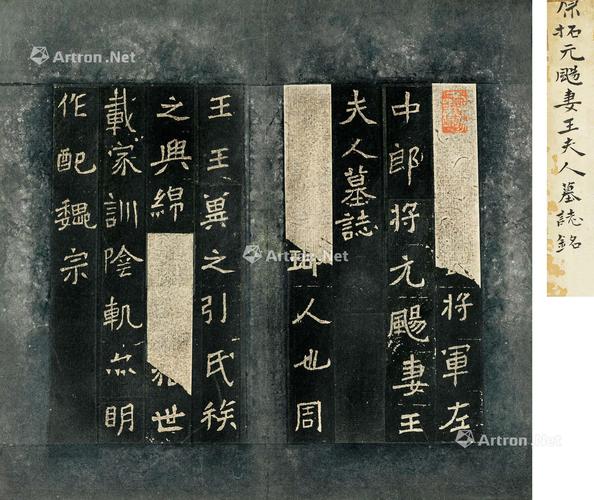 拓元颺妻王夫人墓誌銘
將軍左
中郎將元颺妻王
夫人墓誌
人也周
王王翼之引氏
之興綿 世
載家訓陰軌亦明
作配魏宗
Artron.Net
Artron.Net
Artron.Net
Artron.Net